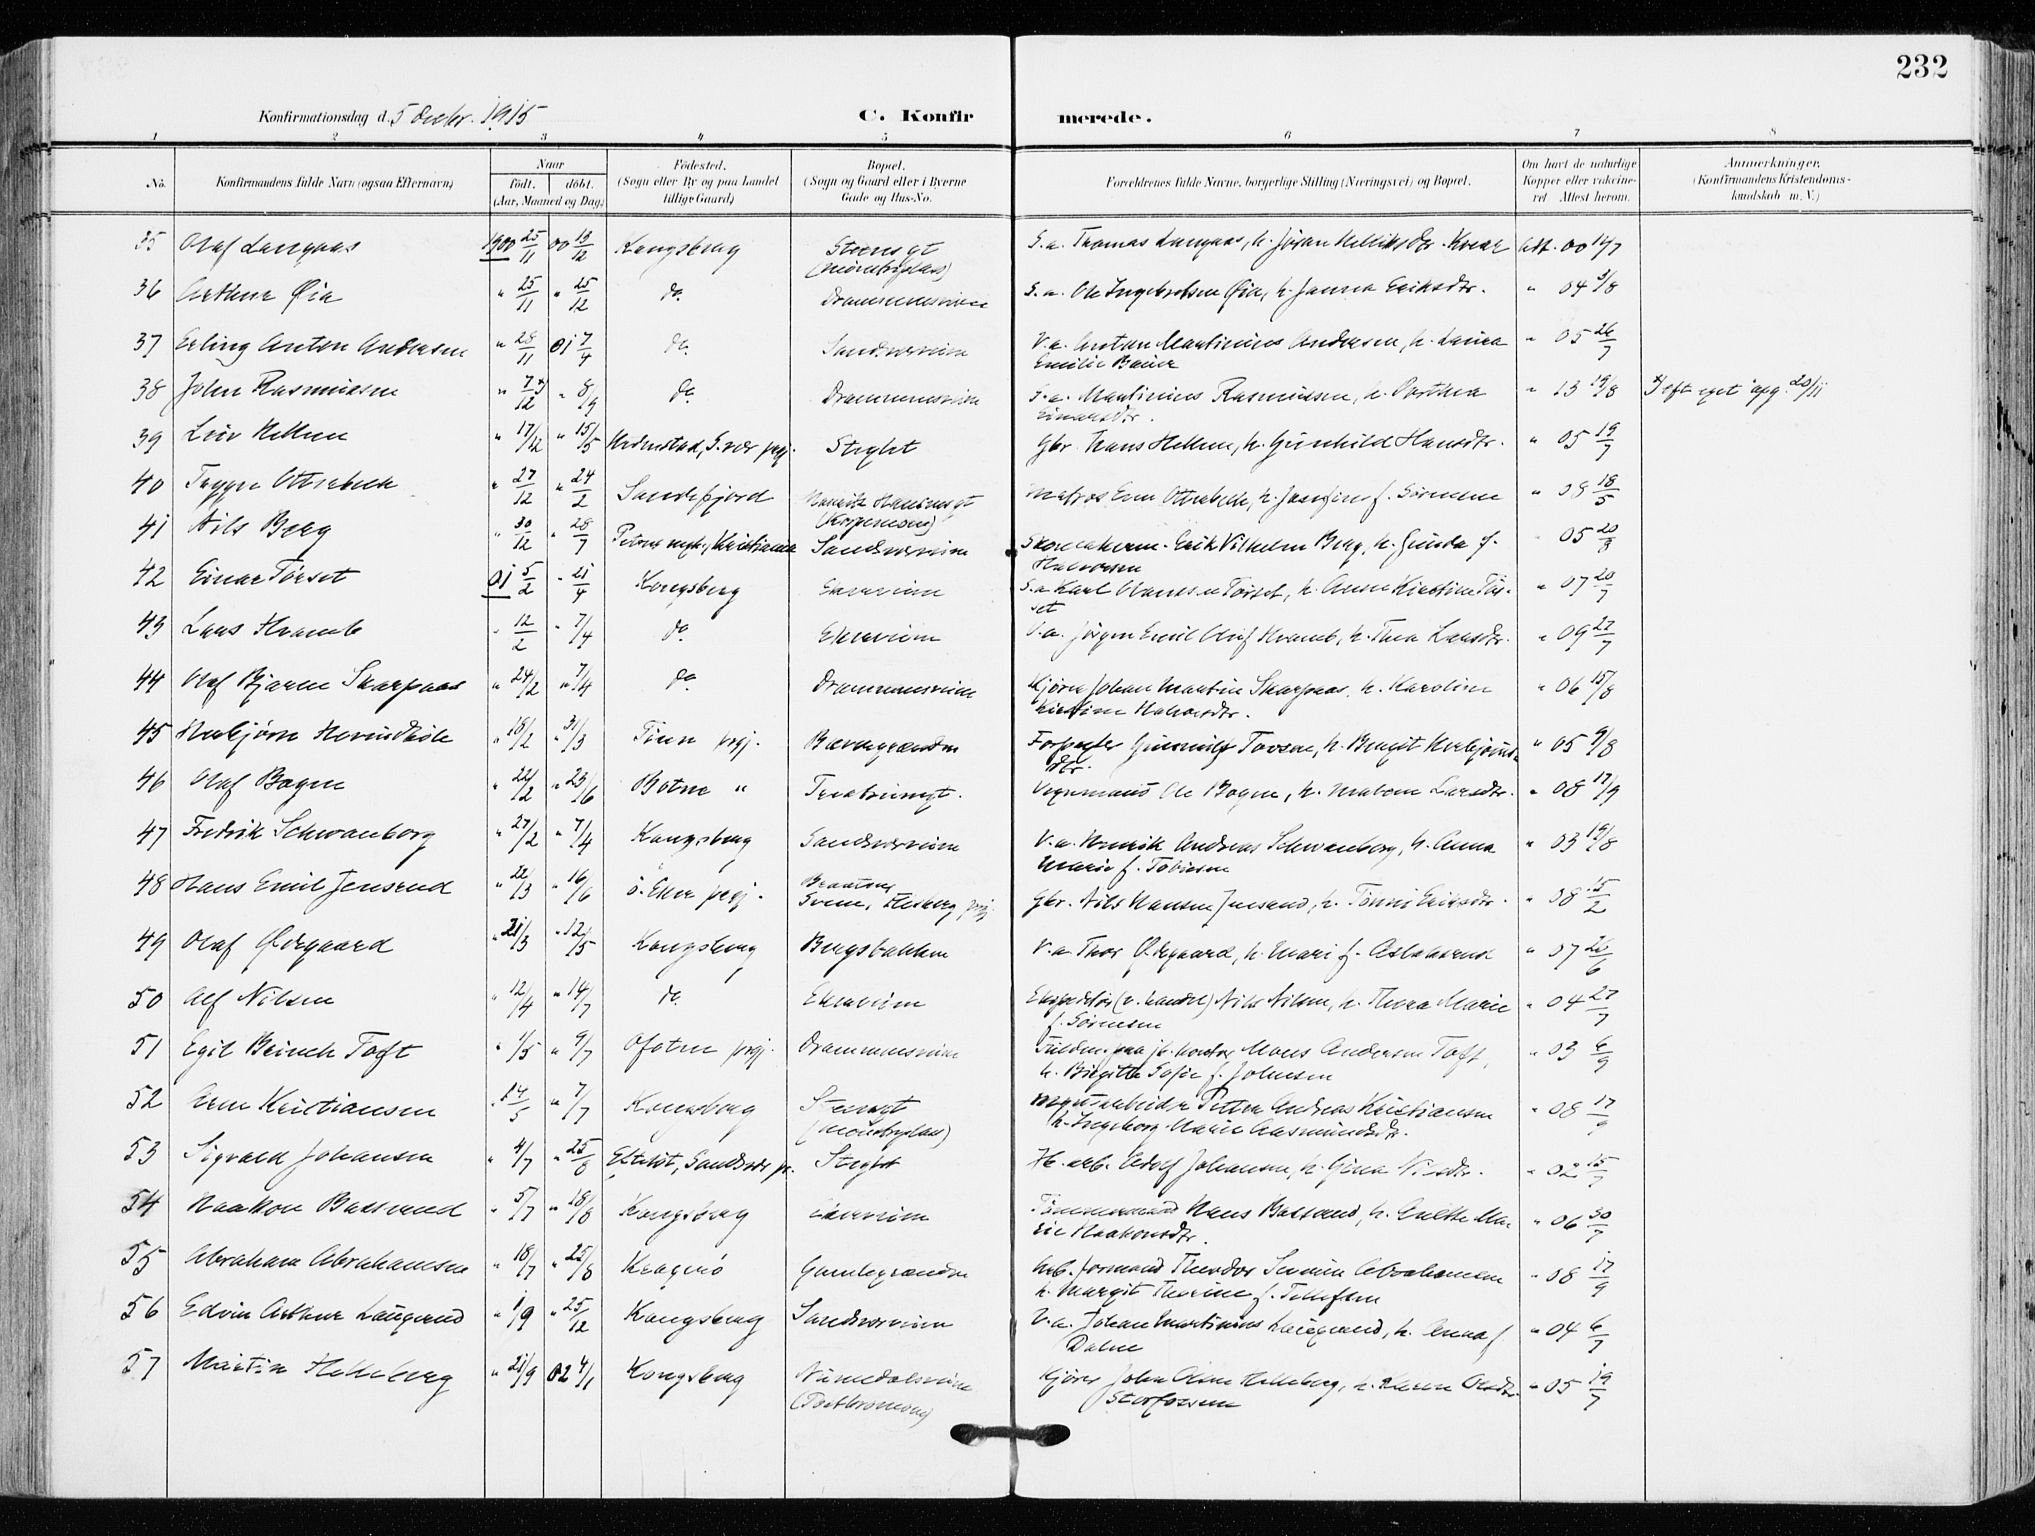 232
Konfirmationsdag d. 5 decbr. 1915
C. Konfirmerede.
1 2 3 4 5 6 7 8
No. Konfirmandens fulde Navn (ogsaa Efternavn) Naar født. døbt. (Aar, Maaned og Dag) Fødested. (Sogn eller By og paa Landet tillige Gaard) Bopæl. (Sogn og Gaard eller i Byerne Gade og Hus-No. Forældrenes fulde Navne, borgerlige Stilling (Næringsvei) og Bopæl. Om havt de naturlige Kopper eller vaksineret Attest herom. Anmerkninger. (Konfirmandens Kristendomskundskab m. V.)
35 Olaf Langaas 1900 25/11 00 13/12 Kongsberg Steensgt S.a. Thomas Langaas, h. Jøran Att. 00 /7
(Møntbrplass)
36 Arthur Øia " 25/11 " 25/12 do. Drammensveien S.a. Ole Ingebretsen Øia, h. Janna Eriksdtr. " 04 3/8
37 Erling Anton Andersen " 28/11 01 7/4 do. Sandsværveien V.a. Anton Martinius Andersen, h. Laura " 05 26/7
Emilie Bauer
38 John Rasmussen " 7/12 x) " 8/9 do. Drammensveien S.a. Martinius Rasmussen, h. Dorthea " 13 19/8 x) eft. eget opg. 20/11
Einarsdtr.
39 Leiv Hellum " 17/12 " 15/5 Hedenstad, S.vær prgj. Steglet Gbr. Hans Hellum, h. Gunhild Hansdtr. " 05 19/7
40 Trygve Otterbech " 27/12 " 24/2 Sandefjord Henrik Hansens gt Matros Einar Otterbech, h. Josefine f. Sørensen " 08 18/5
41 Nils Berg " 30/12 " 28/7 Petrus mgh., Kristiania Sandsværveien Skomakerm. Erik Vilhelm Berg, h. Gunda f. " 05 20/8
Halvorsen
42 Einar Tørset 01 5/2 " 21/4 Kongsberg Ekerveien S.a. Karl Hansen Tørset, h. Anne Kirstine Tør- " 07 20/7
set
43 Lars Kramb " 12/2 " 7/4 do. Ekerveien V.a. Jørgen Emil Oluf Kramb, h. Thea Larsdtr. " 09 27/7
44 Olaf Bjarne Skarpaas " 24/2 " 7/4 do. Drammensveien Kjører Johan Martin Skarpaas, h. Karoline " 06 15/8
Kirstine Halvorsdtr.
45 Herbjørn " 18/2 " 31/3 Tinn prgj. Forpagter Gunnulf Tovsen, h. Bergit Herbjørns- " 05 9/8
dtr.
46 Olaf Bogen " 22/2 " 23/6 Botne " Teatersmgt. Vognmand Ole Bogen, h. Larsdtr. " 08 17/9
47 Fredrik Schwanborg " 27/2 " 7/4 Kongsberg Sandsværveien V.a. Henrik Andreas Schwanborg, h. Anna " 03 19/8
Marie f. Tobiesen
48 Hans Emil Jensrud " 22/3 " 16/6 Ø. Eker prgj. Svene, Flesberg prgj. Gbr. Nils Hansen Jensrud, h. Tønne Eriksdtr. " 08 15/2
49 Olaf Ødegaard " 21/3 " 12/5 Kongsberg Bergsbakken V.a. Thor Ødegaard, h. Mari f. Aslaksrud " 07 26/6
50 Alf Nilsen " 12/4 " 14/7 do. Ekerveien Ekspeditør (v. handel) Nils Nilsen, h. Thora Marie " 04 27/7
f. Sørensen
51 Egil Brinch Toft " 1/5 " 9/7 Ofoten prgj. Drammensveien Fuldm. paa jb. kontor Mons Andersen Toft, " 03 6/9
h. Birgitte Sofie f. Johnsen
52 Arne Kristiansen " 14/5 " 7/7 Kongsberg Steensgt Myntarbeider Petter Andreas Kristiansen " 08 17/9
(Møntbrplass) h. Ingeborg Marie Aasmundsdtr.
53 Sigvald Johansen " 4/7 " 25/8 Efteløt, Sandsvær pr. Steglet Jb. arb. Adolf Johansen, h. Gina Nilsdtr. " 02 15/7
54 Haakon Basserud " 5/7 " 18/8 Kongsberg Ekerveien Tømmermand Hans Basserud, h. Grethe Ma- " 06 30/7
rie Haakonsdtr.
55 Abraham Abrahamsen " 18/7 " 25/8 Kragerø Gamlegrænden Arb. formand Theodor Severin Abrahamsen " 08 17/9
h. Margit Therine f. Tellefsen
56 Edvin Arthur Laugerud " 1/9 " 25/12 Kongsberg Sandsværveien V.a. Johan Martinius Laugerud, h. Anna f. " 04 6/7
Dalene
57 Martin Helleberg " 21/9 02 4/1 Kongsberg Numedalsveien Kjører John Olsen Helleberg, h. Karen Olsdtr. " 05 19/7
Storfossen